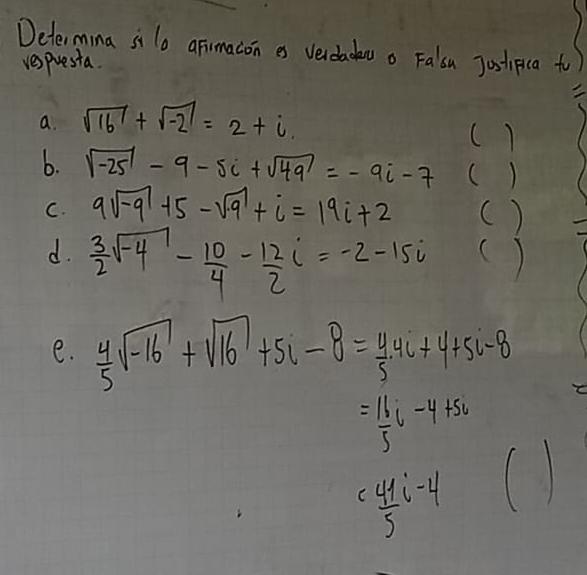 Determina si lo afirmación es Verdadera o Falsa Justifica tu
respuesta.
a. √16 + √-2 = 2 + i. ( )
b. √-25 - 9 - 5i + √49 = - 9i - 7 ( )
c. 9√-9 + 5 - √9 + i = 19i + 2 ( )
d. 3/2 √-4 - 10/4 - 12/2 i = -2 - 15i ( )
e. 4/5 √-16 + √16 + 5i - 8 = 4/5 4i + 4 + 5i - 8
= 16/5 i - 4 + 5i
= 41/5 i - 4 ( )